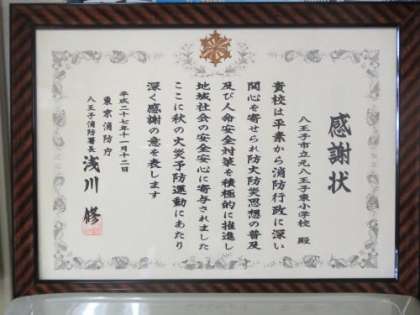 感謝状
八王子市立元八王子東小学校 殿
貴校は平素から消防行政に深い
関心を寄せられ防火防災思想の普及
及び人命安全対策を積極的に推進し
地域社会の安全安心に寄与されました
ここに秋の火災予防運動にあたり
深く感謝の意を表します
平成二十七年十一月十二日
東京消防庁
八王子消防署長 浅川 修